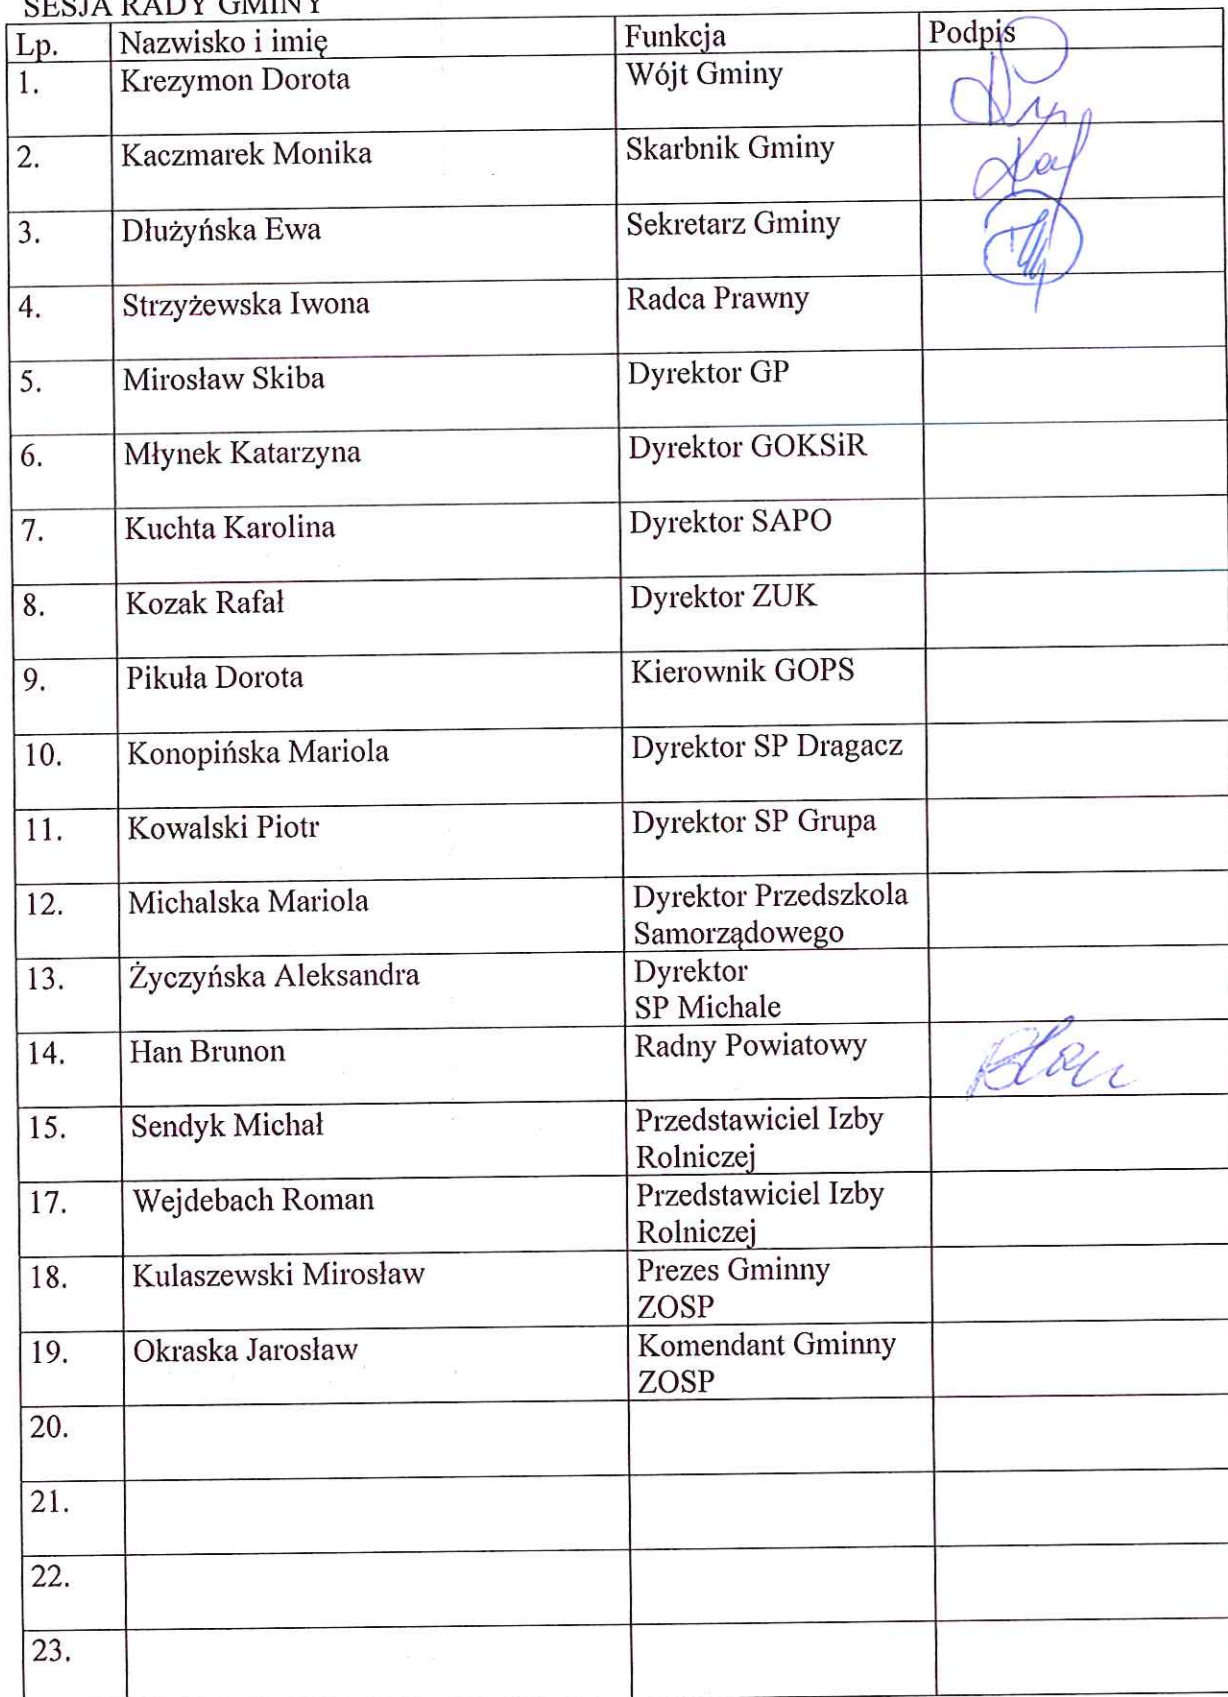 SESJA RADY GMINY
Lp. Nazwisko i imię Funkcja Podpis
1. Krezymon Dorota Wójt Gminy
2. Kaczmarek Monika Skarbnik Gminy
3. Dłużyńska Ewa Sekretarz Gminy
4. Strzyżewska Iwona Radca Prawny
5. Mirosław Skiba Dyrektor GP
6. Młynek Katarzyna Dyrektor GOKSiR
7. Kuchta Karolina Dyrektor SAPO
8. Kozak Rafał Dyrektor ZUK
9. Pikuła Dorota Kierownik GOPS
10. Konopińska Mariola Dyrektor SP Dragacz
11. Kowalski Piotr Dyrektor SP Grupa
12. Michalska Mariola Dyrektor Przedszkola
Samorządowego
13. Życzyńska Aleksandra Dyrektor
SP Michale
14. Han Brunon Radny Powiatowy
15. Sendyk Michał Przedstawiciel Izby
Rolniczej
17. Wejdebach Roman Przedstawiciel Izby
Rolniczej
18. Kulaszewski Mirosław Prezes Gminny
ZOSP
19. Okraska Jarosław Komendant Gminny
ZOSP
20.
21.
22.
23.